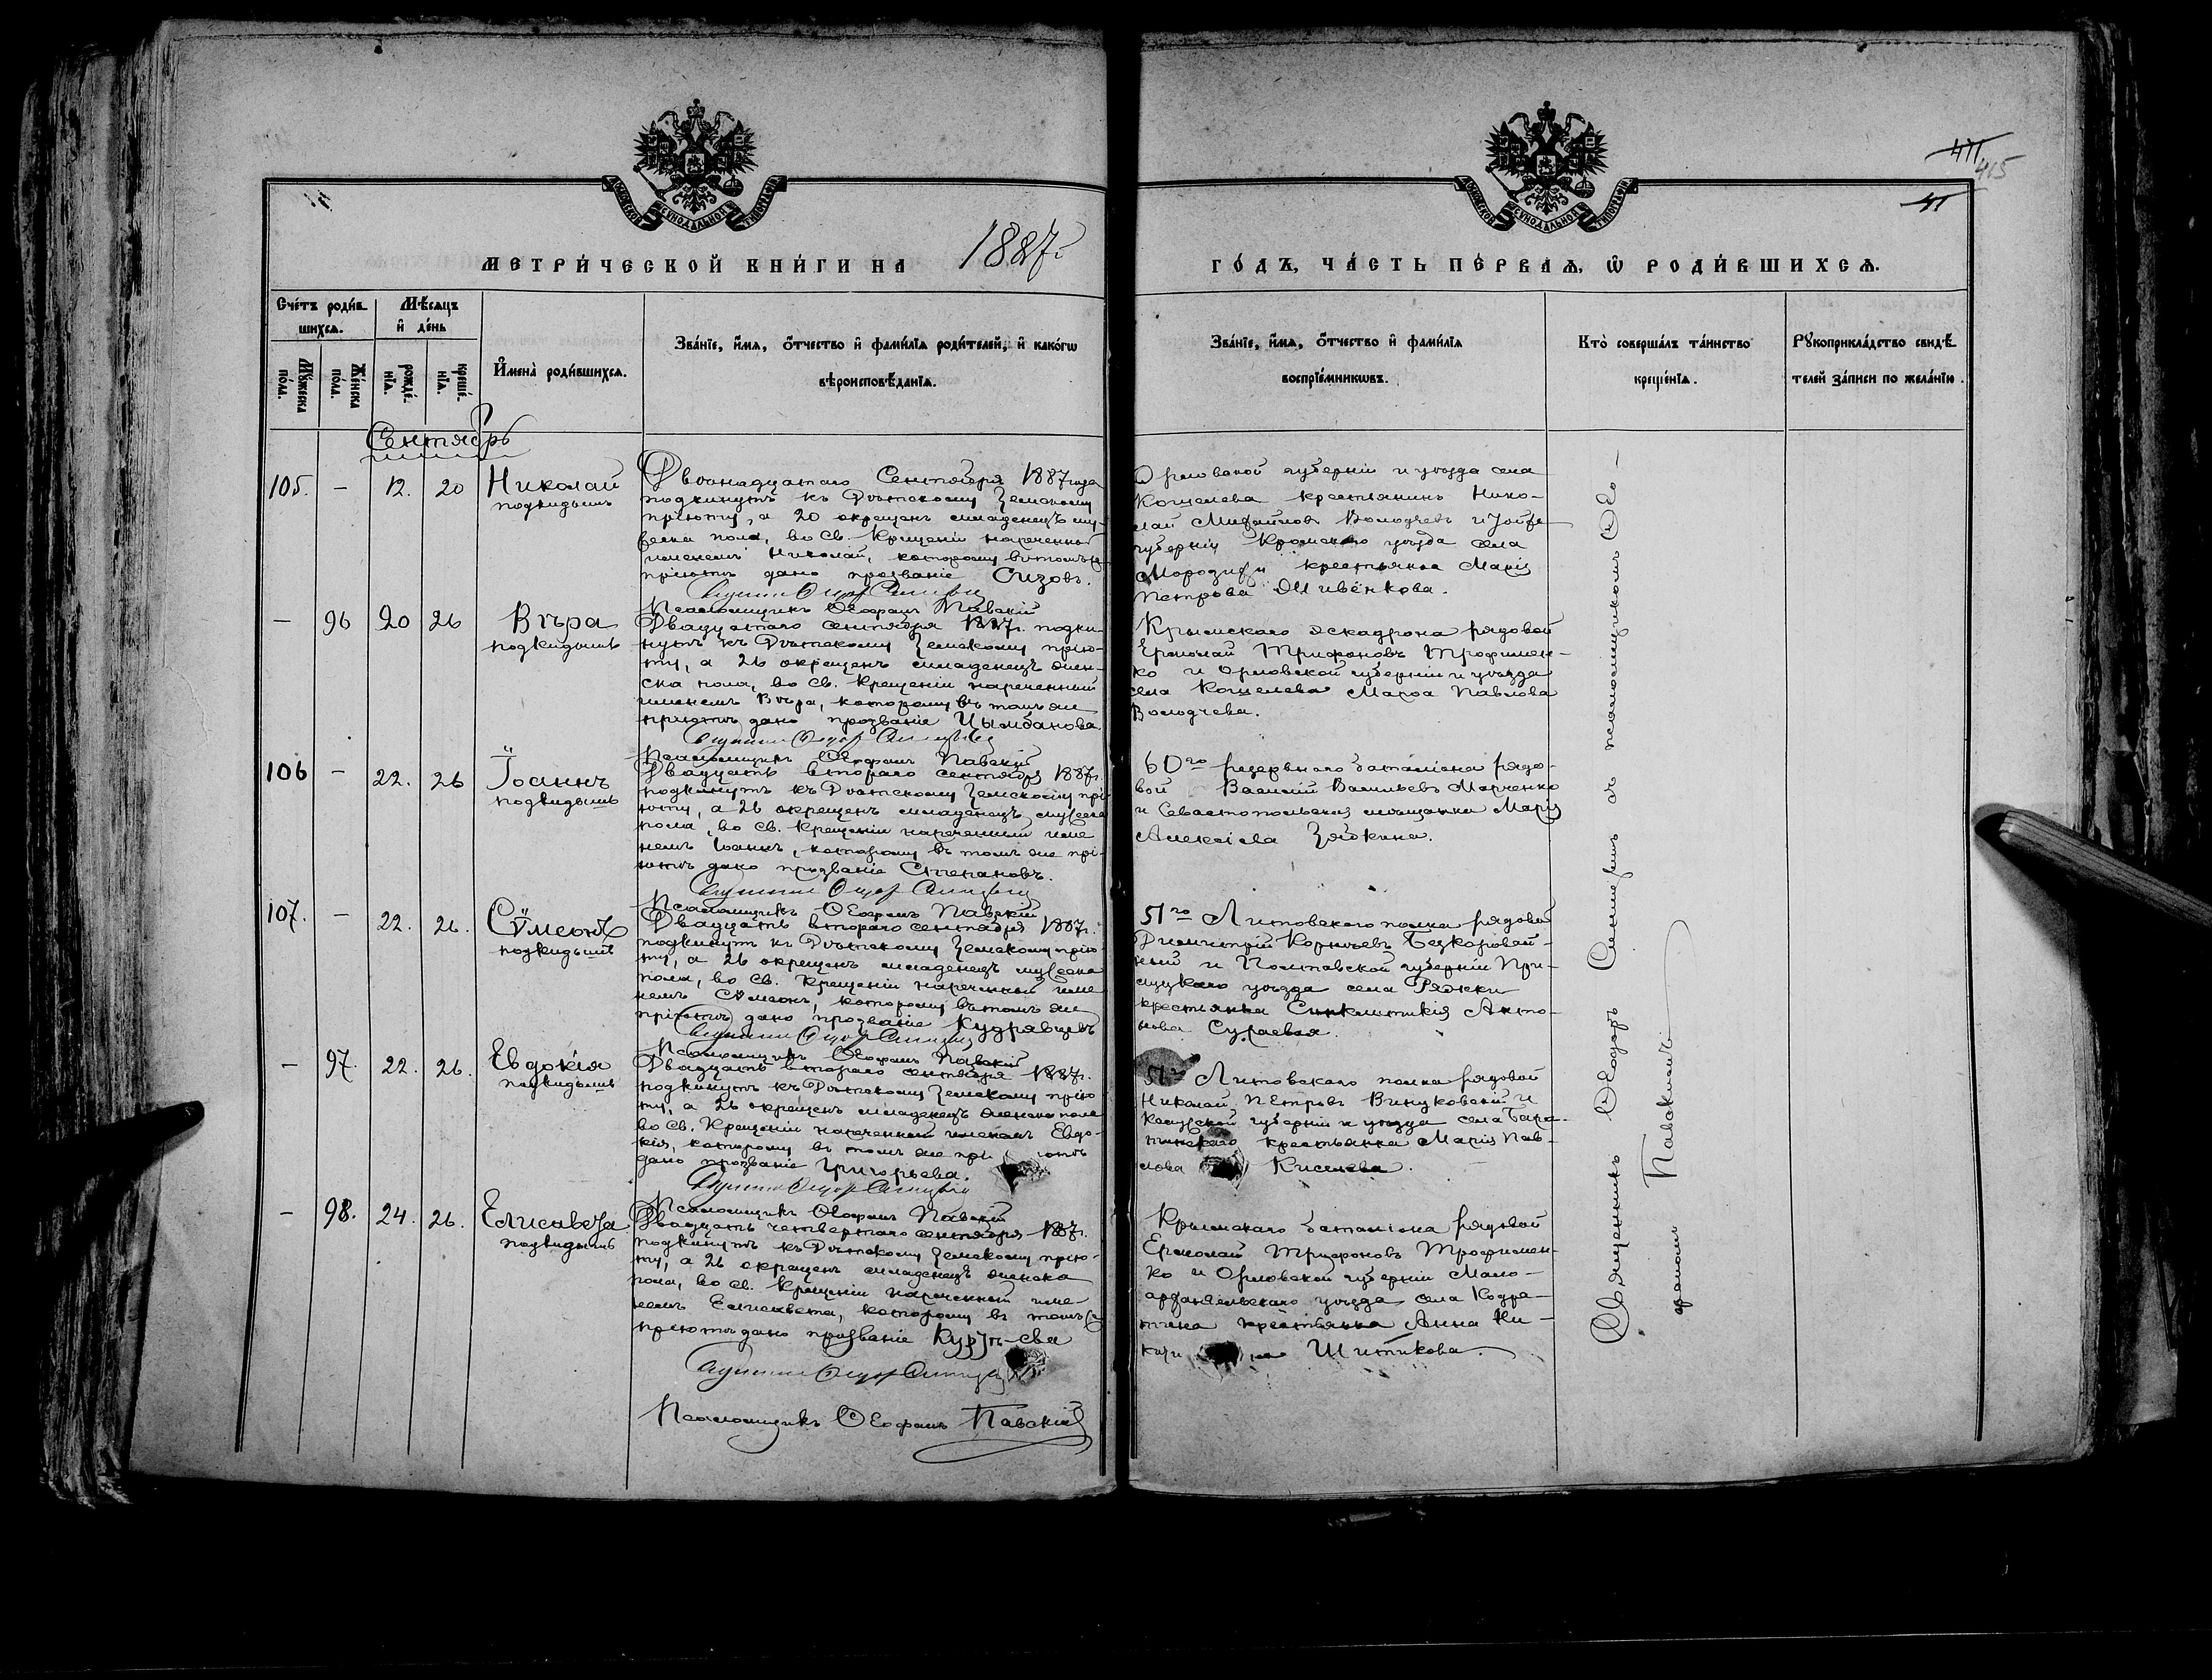 411
415
41
МОСКОВСКОЙ СѴНОДАЛЬНОЙ ТИПОГРАФІИ
МОСКОВСКОЙ СѴНОДАЛЬНОЙ ТИПОГРАФІИ
МЕТРИ́ЧЕСКОЙ КНИ́ГИ НА 1887 г.
ГО́ДЪ, ЧА́СТЬ ПЕ́РВАѦ, Ѡ҆ РОДИ́ВШИХСѦ.
Сче́тъ роди́вшихсѧ.
Мѣ́сѧцъ и҆ де́нь
Мꙋ́жеска по́ла.
Же́нска по́ла.
рожде́нїѧ.
креще́нїѧ.
И҆мена̀ роди́вшихсѧ.
Зва́нїе, и҆́мѧ, ѻ҆́тчество и҆ фами́лїѧ роди́телей, и҆ како́гѡ
вѣроисповѣ́данїѧ.
Зва́нїе, и҆́мѧ, ѻ҆́тчество и҆ фами́лїѧ
воспрїе́мникѡвъ.
Кто̀ соверша́лъ та́инство
креще́нїѧ.
Рꙋкоприкла́дство свидѣ́телей за́писи по жела́нїю.
Сентябрь
105. — 12. 20 Николай
подкидышъ
Двѣнадцатаго Сентября 1887 года
подкинутъ къ Дѣтскому Земскому
пріюту, а 20 окрещенъ младенецъ му-
жеска пола, во св. Крещеніи нареченный
именемъ Николай, которому въ томъ же
пріютѣ дано прозваніе Сизовъ.
Псаломщикъ Ѳеофанъ Павскій
Орловской губерніи и уѣзда села
Кошелева крестьянинъ Нико-
лай Михайловъ Володчевъ и той же
губерніи Кромскаго уѣзда села
крестьянка Марія
Петрова
— 96 20 26 Вѣра
подкидышъ
Двадцатаго сентября 1887 г. подки-
нутъ къ Дѣтскому Земскому прію-
ту, а 26 окрещенъ младенецъ жен-
ска пола, во св. Крещеніи нареченный
именемъ Вѣра, которому въ томъ же
пріютѣ дано прозваніе Цымбанова
Псаломщикъ Ѳеофанъ Павскій
Крымскаго эскадрона рядовой
Ермолай Трифоновъ Трофимен-
ко и Орловской губерніи и уѣзда
села Кошелева Марѳа Павлова
Володчева.
106 — 22. 26 Іоаннъ
подкидышъ
Двадцать втораго сентября 1887 г.
подкинутъ къ Дѣтскому Земскому прі-
юту, а 26 окрещенъ младенецъ мужеска
пола, во св. Крещеніи нареченный име
немъ Іоаннъ, которому въ томъ же прі-
ютѣ дано прозваніе Степановъ.
Псаломщикъ Ѳеофанъ Павскій
60го резервнаго баталіона рядо-
вой Василій Васильевъ Марченко
и Севастопольская мѣщанка Марія
Алексіева Зяйкина.
107. — 22. 26. Сѵмеонъ
подкидышъ
Двадцать втораго сентября 1887 г.
подкинутъ къ Дѣтскому Земскому прію-
ту, а 26 окрещенъ младенецъ мужеска
пола, во св. Крещеніи нареченный име
немъ Сѵмеонъ, которому въ томъ же
пріютѣ дано прозваніе Кудрявцевъ
Псаломщикъ Ѳеофанъ Павскій
51го Литовскаго полка рядовой
Димитрій Корніевъ Безкоровай-
ный и Полтавской губерніи При-
луцкаго уѣзда села Ряжки
крестьянка Синклитикія Анто-
нова Сураевая.
— 97. 22. 26. Евдокія
подкидышъ
Двадцать втораго сентября 1887 г.
подкинутъ къ Дѣтскому Земскому прію
ту, а 26 окрещенъ младенецъ женска пола
во св. Крещеніи нареченный именемъ Евдо-
кія, которому въ томъ же прі ютѣ
дано прозваніе Григорьева.
Псаломщикъ Ѳеофанъ Павскій
51го Литовскаго полка рядовой
Николай Петровъ Винуковскій и
губерніи и уѣзда села
крестьянка Марія Пав-
лова Киселева.
— 98. 24. 26. Елисавета
подкидышъ
Двадцать четвертаго сентября 1887 г.
подкинутъ къ Дѣтскому Земскому прію-
ту, а 26 окрещенъ младенецъ женска
пола, во св. Крещеніи нареченный име
немъ Елисавета, которому въ томъ же
пріютѣ дано прозваніе
Псаломщикъ Ѳеофанъ Павскій
Крымскаго баталіона рядовой
Ермолай Трифоновъ Трофимен-
ко и Орловской губерніи Мало-
архангельскаго уѣзда села
крестьянка Анна
Шитикова.
Священникъ Ѳеодоръ съ псаломщикомъ Ѳео-
фаномъ Павскимъ